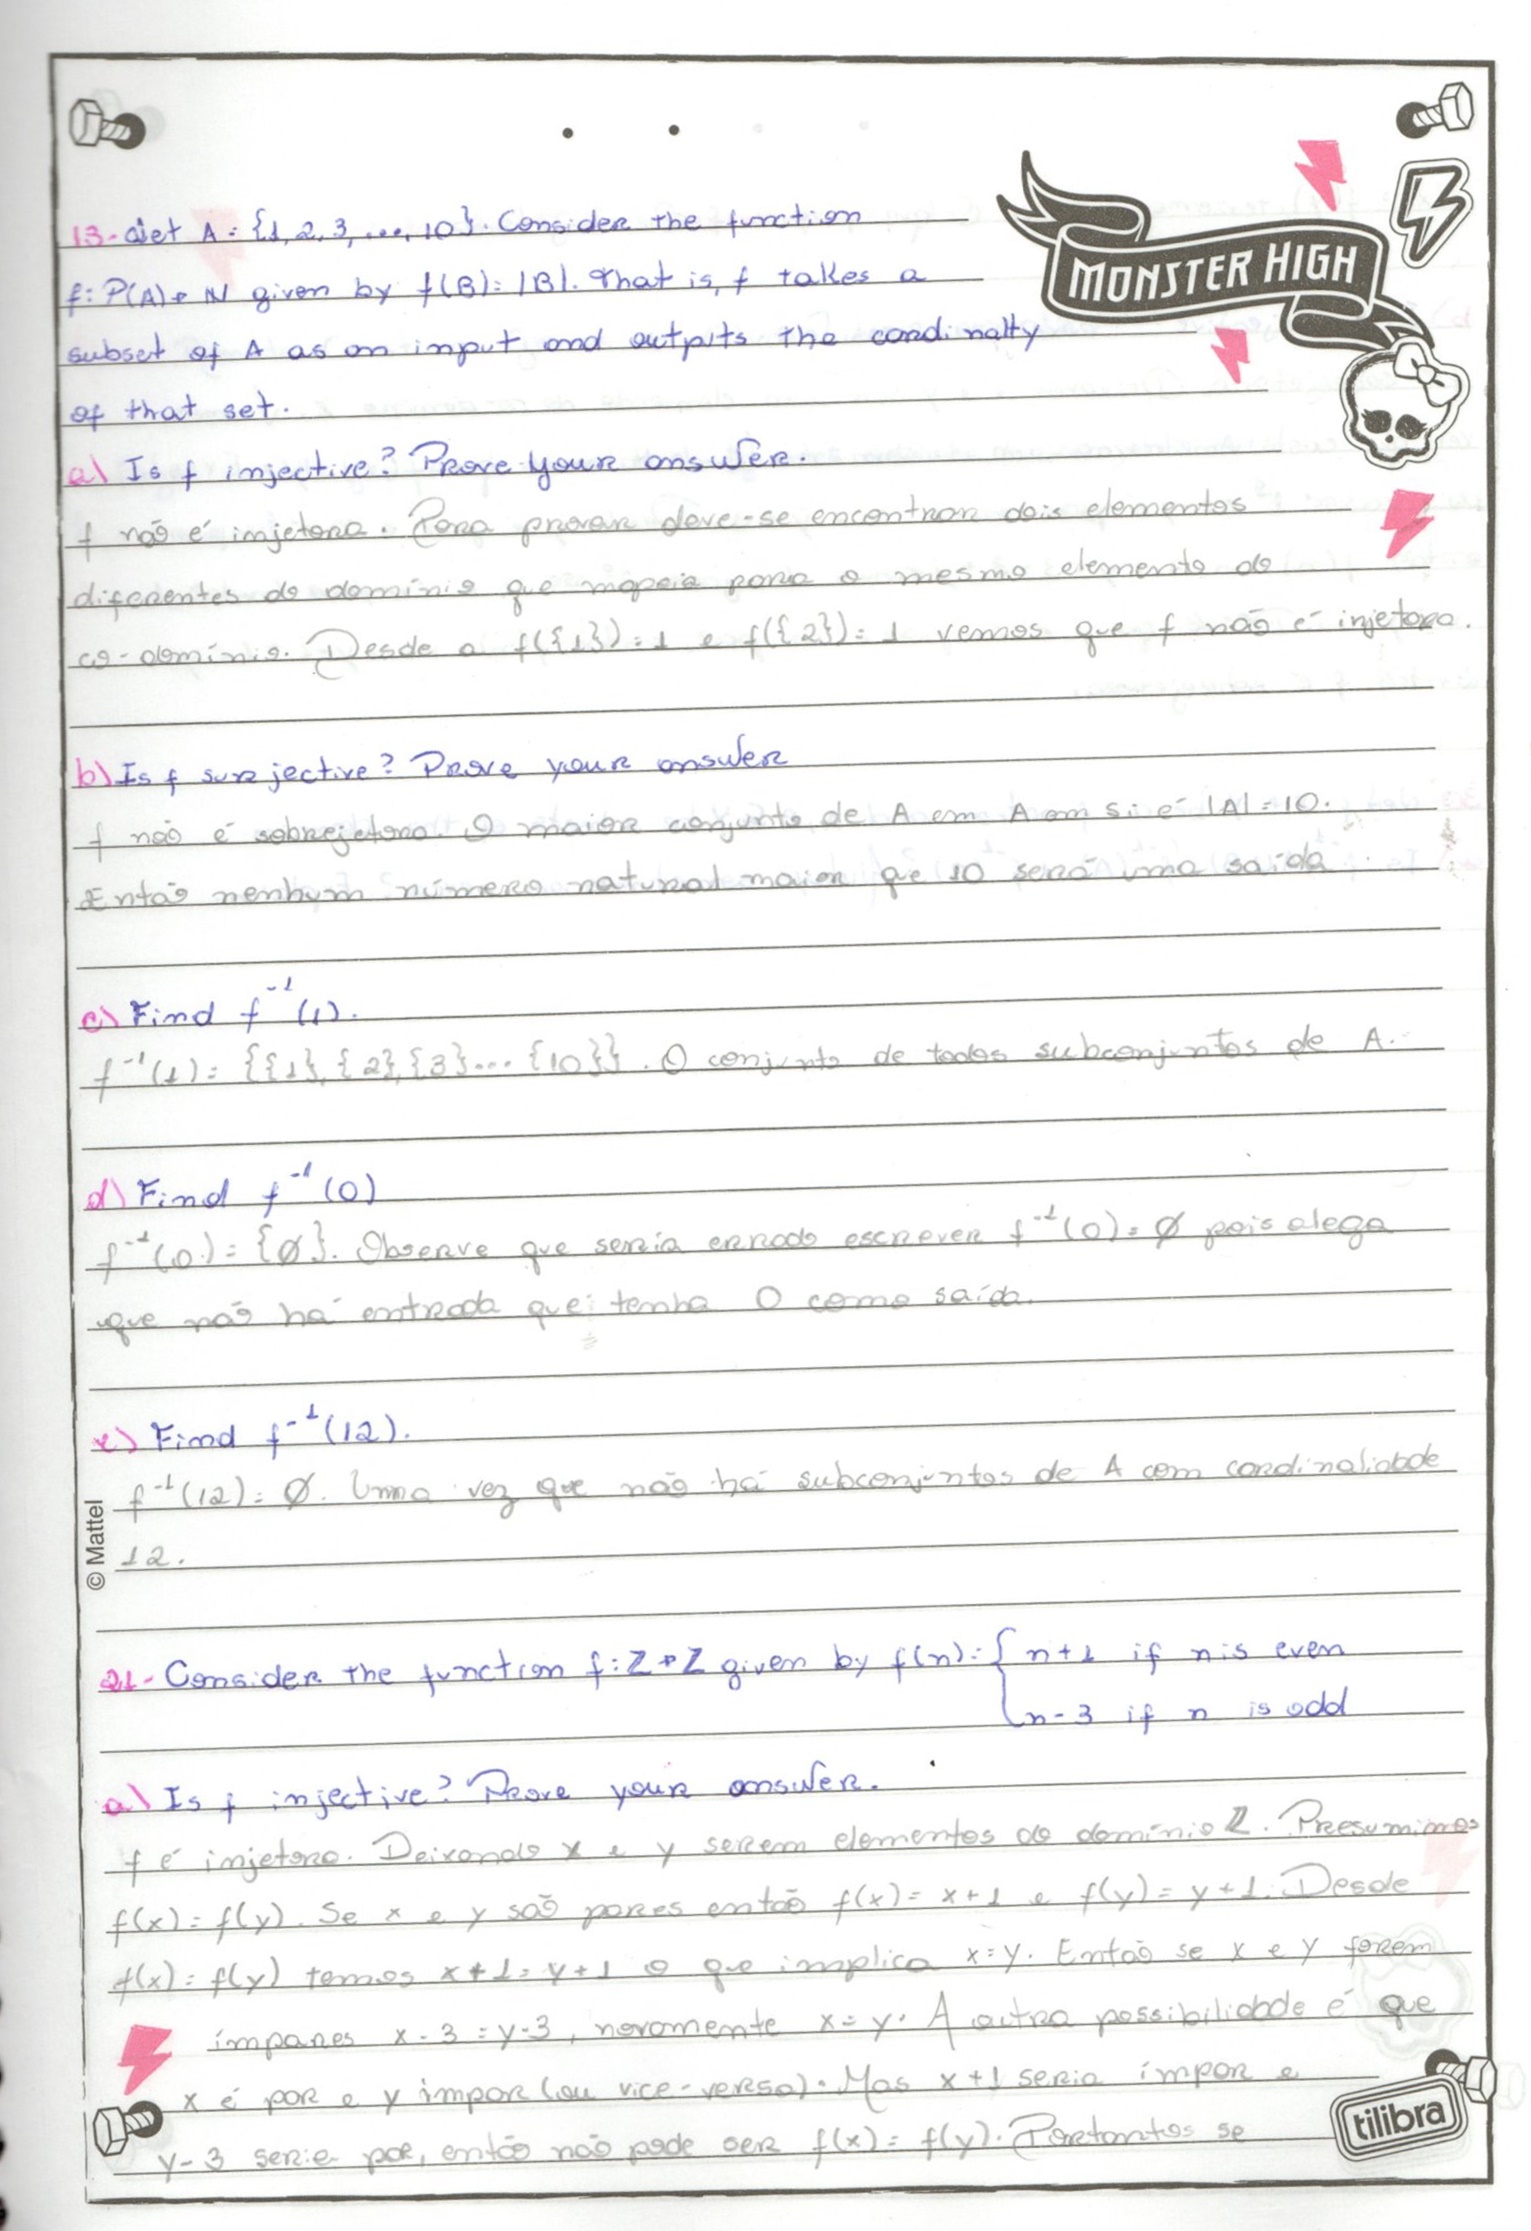 MONSTER HIGH
13- Let A = {1, 2, 3, ..., 10}. Consider the function
f: P(A) → N given by f(B) = |B|. That is, f takes a
subset of A as an input and outputs the cardinalty
of that set.
a) Is f injective? Prove your answer.
f não é injetora. Para provar deve-se encontrar dois elementos
diferentes do domínio que mapeia para o mesmo elemento do
co-domínio. Desde a f({1}) = 1 e f({2}) = 1 vemos que f não é injetora.
b) Is f surjective? Prove your answer
f não é sobrejetora. O maior conjunto de A em A em si é |A| = 10.
Então nenhum número natural maior que 10 será uma saída
c) Find f⁻¹(1).
f⁻¹(1) = {{1}, {2}, {3} ... {10}}. O conjunto de todos subconjuntos de A.
d) Find f⁻¹(0)
f⁻¹(0) = {∅}. Observe que seria errado escrever f⁻¹(0) = ∅ pois alega
que não há entrada que tenha 0 como saída.
e) Find f⁻¹(12).
f⁻¹(12) = ∅. Uma vez que não há subconjuntos de A com cardinalidade
12.
© Mattel
21- Consider the function f: Z → Z given by f(n) = { n+1 if n is even
n-3 if n is odd
a) Is f injective? Prove your answer.
f é injetora. Deixando x e y serem elementos do domínio Z. Presumimos
f(x) = f(y). Se x e y são pares então f(x) = x+1 e f(y) = y+1. Desde
f(x) = f(y) temos x+1 = y+1 o que implica x = y. Então se x e y forem
ímpares x-3 = y-3, novamente x = y. A outra possibilidade é que
x é par e y impar (ou vice-versa). Mas x+1 seria ímpar e
y-3 serie par, então não pode ser f(x) = f(y). Portantos se
tilibra